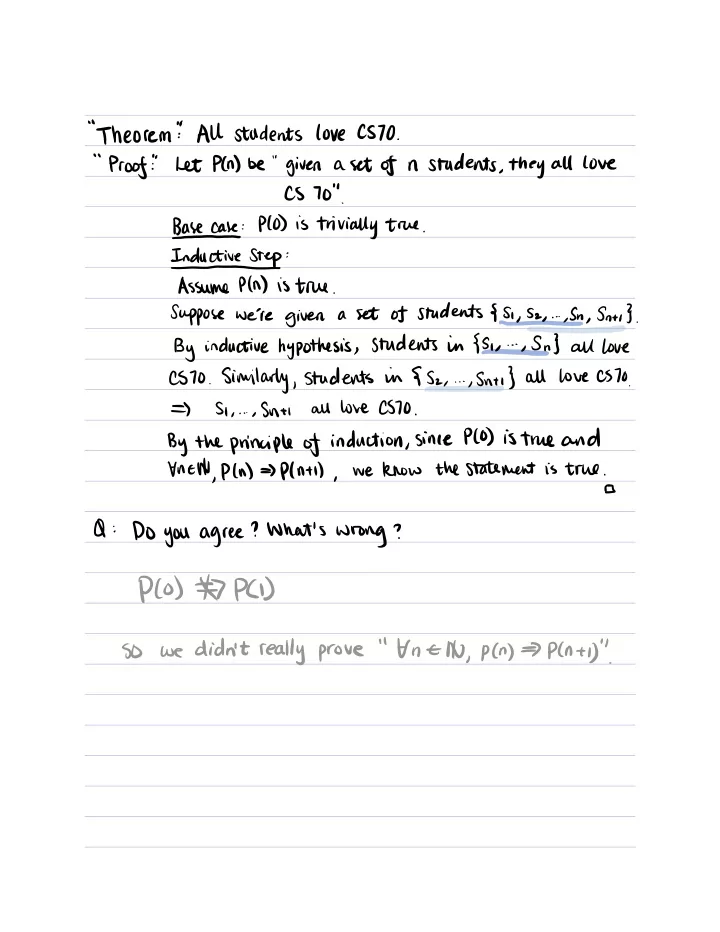 "Theorem": All students love CS70.
"Proof:" Let P(n) be "given a set of n students, they all love
CS 70".
Base case: P(0) is trivially true.
Inductive Step:
Assume P(n) is true.
Suppose we're given a set of students {S₁, S₂, ..., Sₙ, Sₙ₊₁}.
By inductive hypothesis, students in {S₁, ..., Sₙ} all love
CS70. Similarly, students in {S₂, ..., Sₙ₊₁} all love CS70.
⇒ S₁, ..., Sₙ₊₁ all love CS70.
By the principle of induction, since P(0) is true and
∀n∈ℕ, P(n) ⇒ P(n+1), we know the statement is true.
□
Q: Do you agree? What's wrong?
P(0) ⇏ P(1)
so we didn't really prove "∀n ∈ ℕ, P(n) ⇒ P(n+1)".